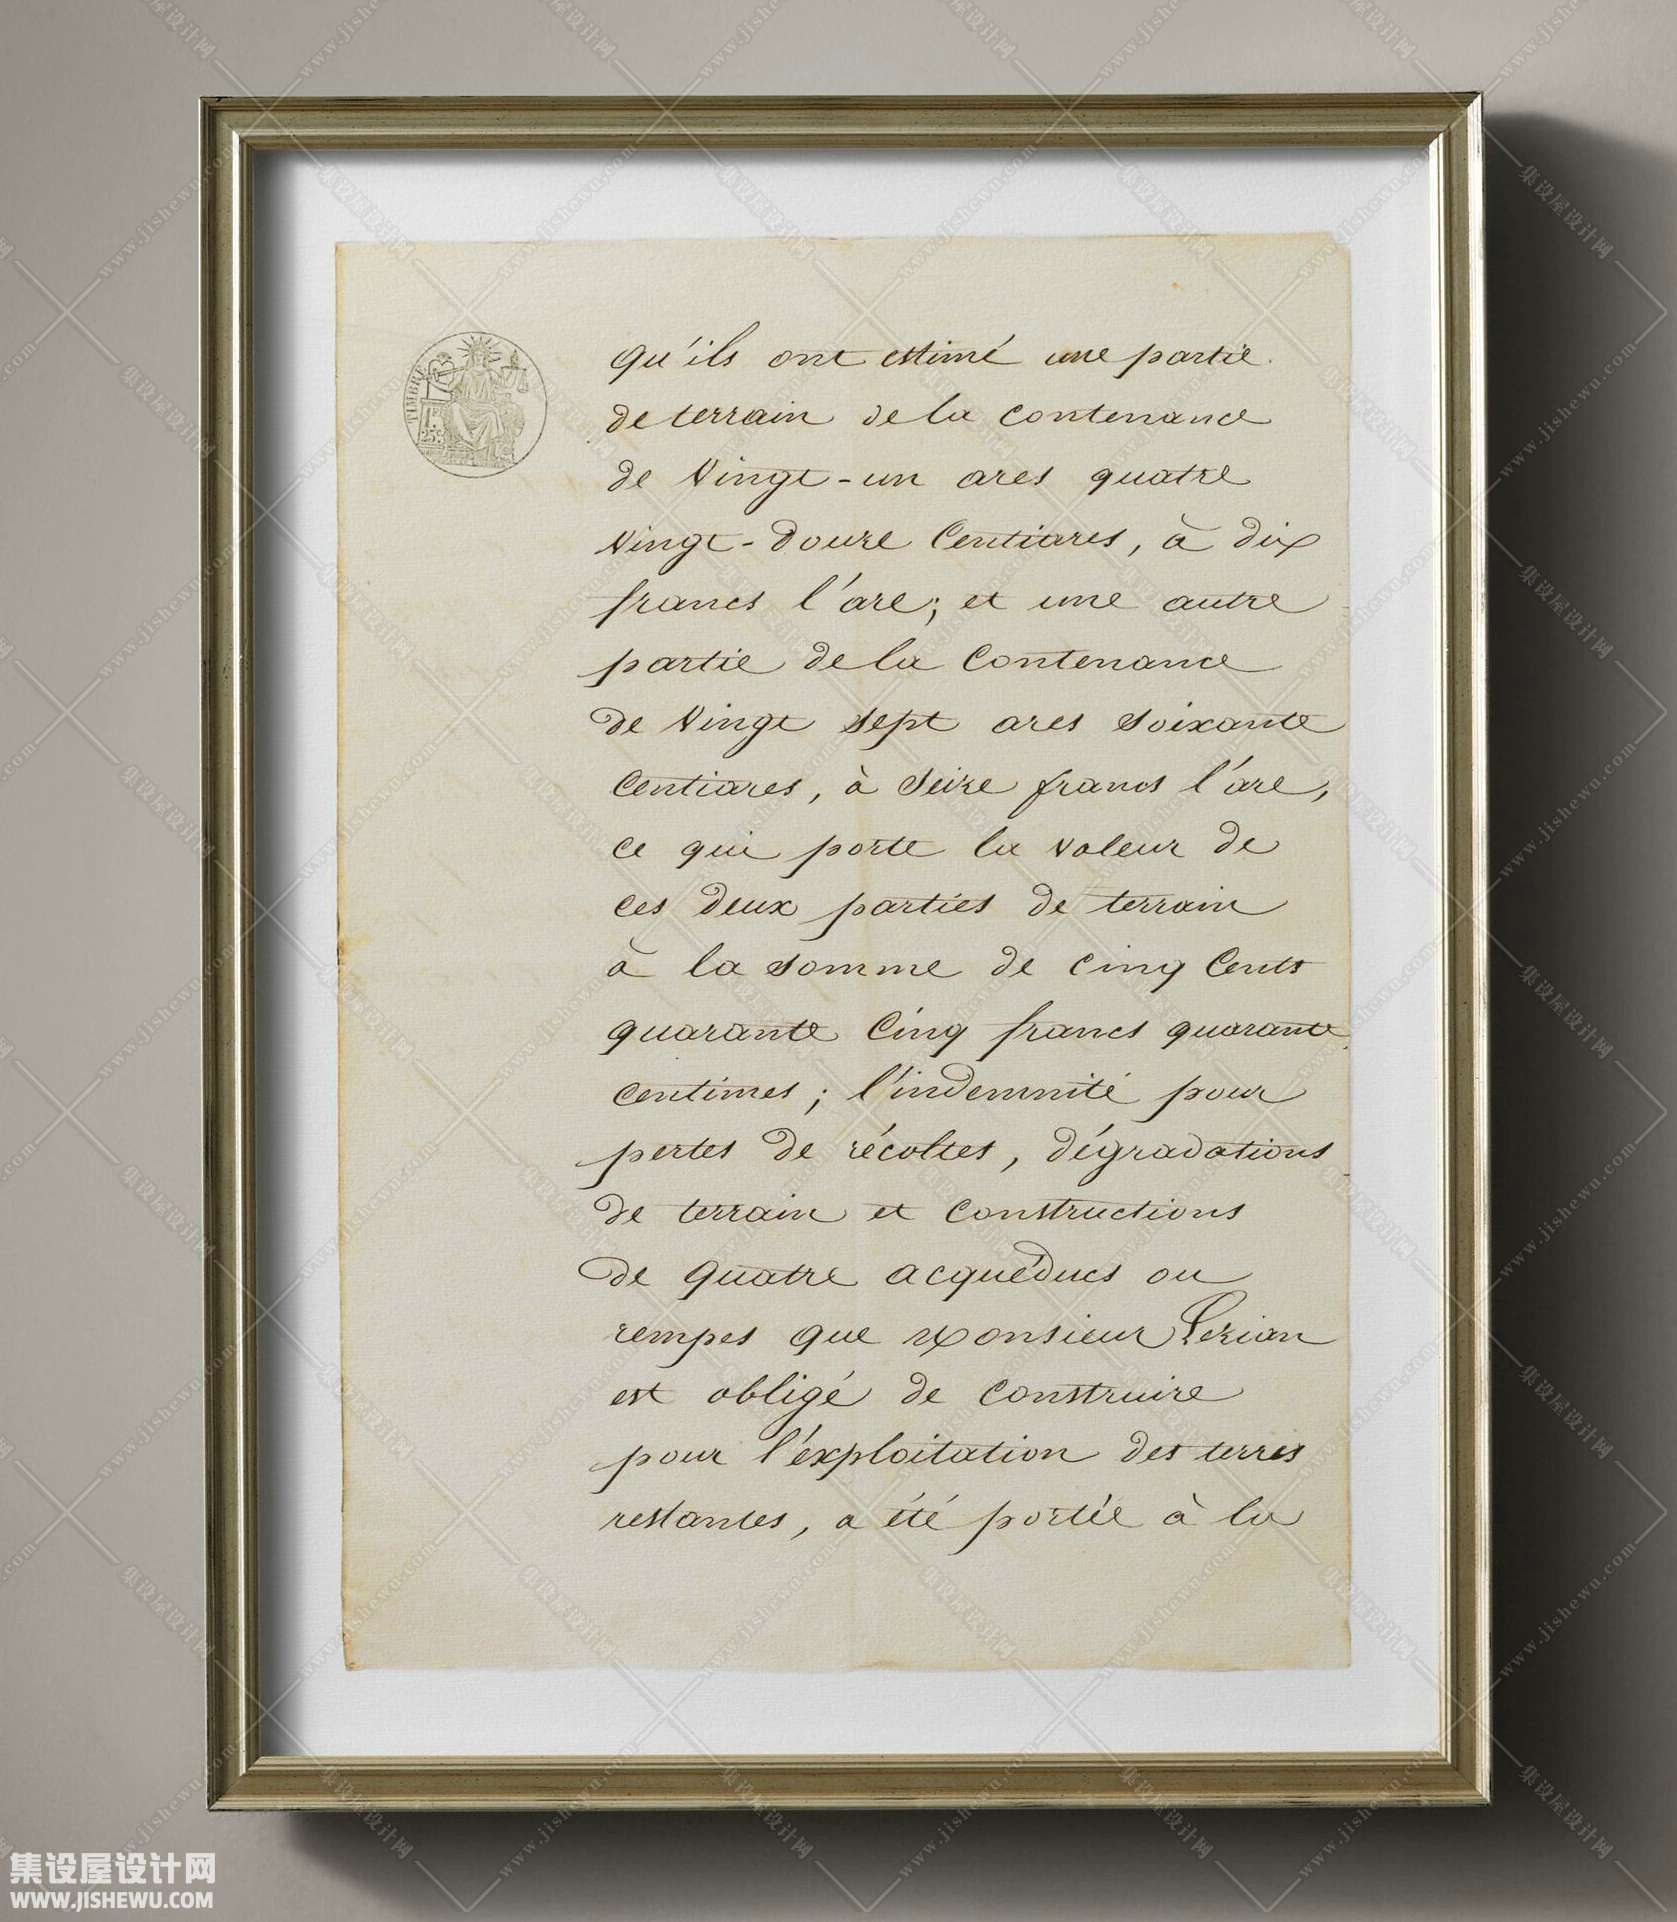 TIMBRE
25c
qu'ils ont estimé une partie
de terrain de la contenance
de Vingt-un ares quatre
Vingt-Douze Centiares, à dix
francs l'are; et une autre
partie de la Contenance
de Vingt sept ares soixante
Centiares, à seize francs l'are,
ce qui porte la valeur de
ces deux parties de terrain
à la somme de cinq Cents
quarante Cinq francs quarante
centimes; l'indemnité pour
pertes de récoltes, dégradations
de terrain et constructions
de quatre acquéducs ou
rempes que Monsieur
est obligé de construire
pour l'exploitation des terres
restantes, a été portée à la
集设屋设计网
WWW.JISHEWU.COM